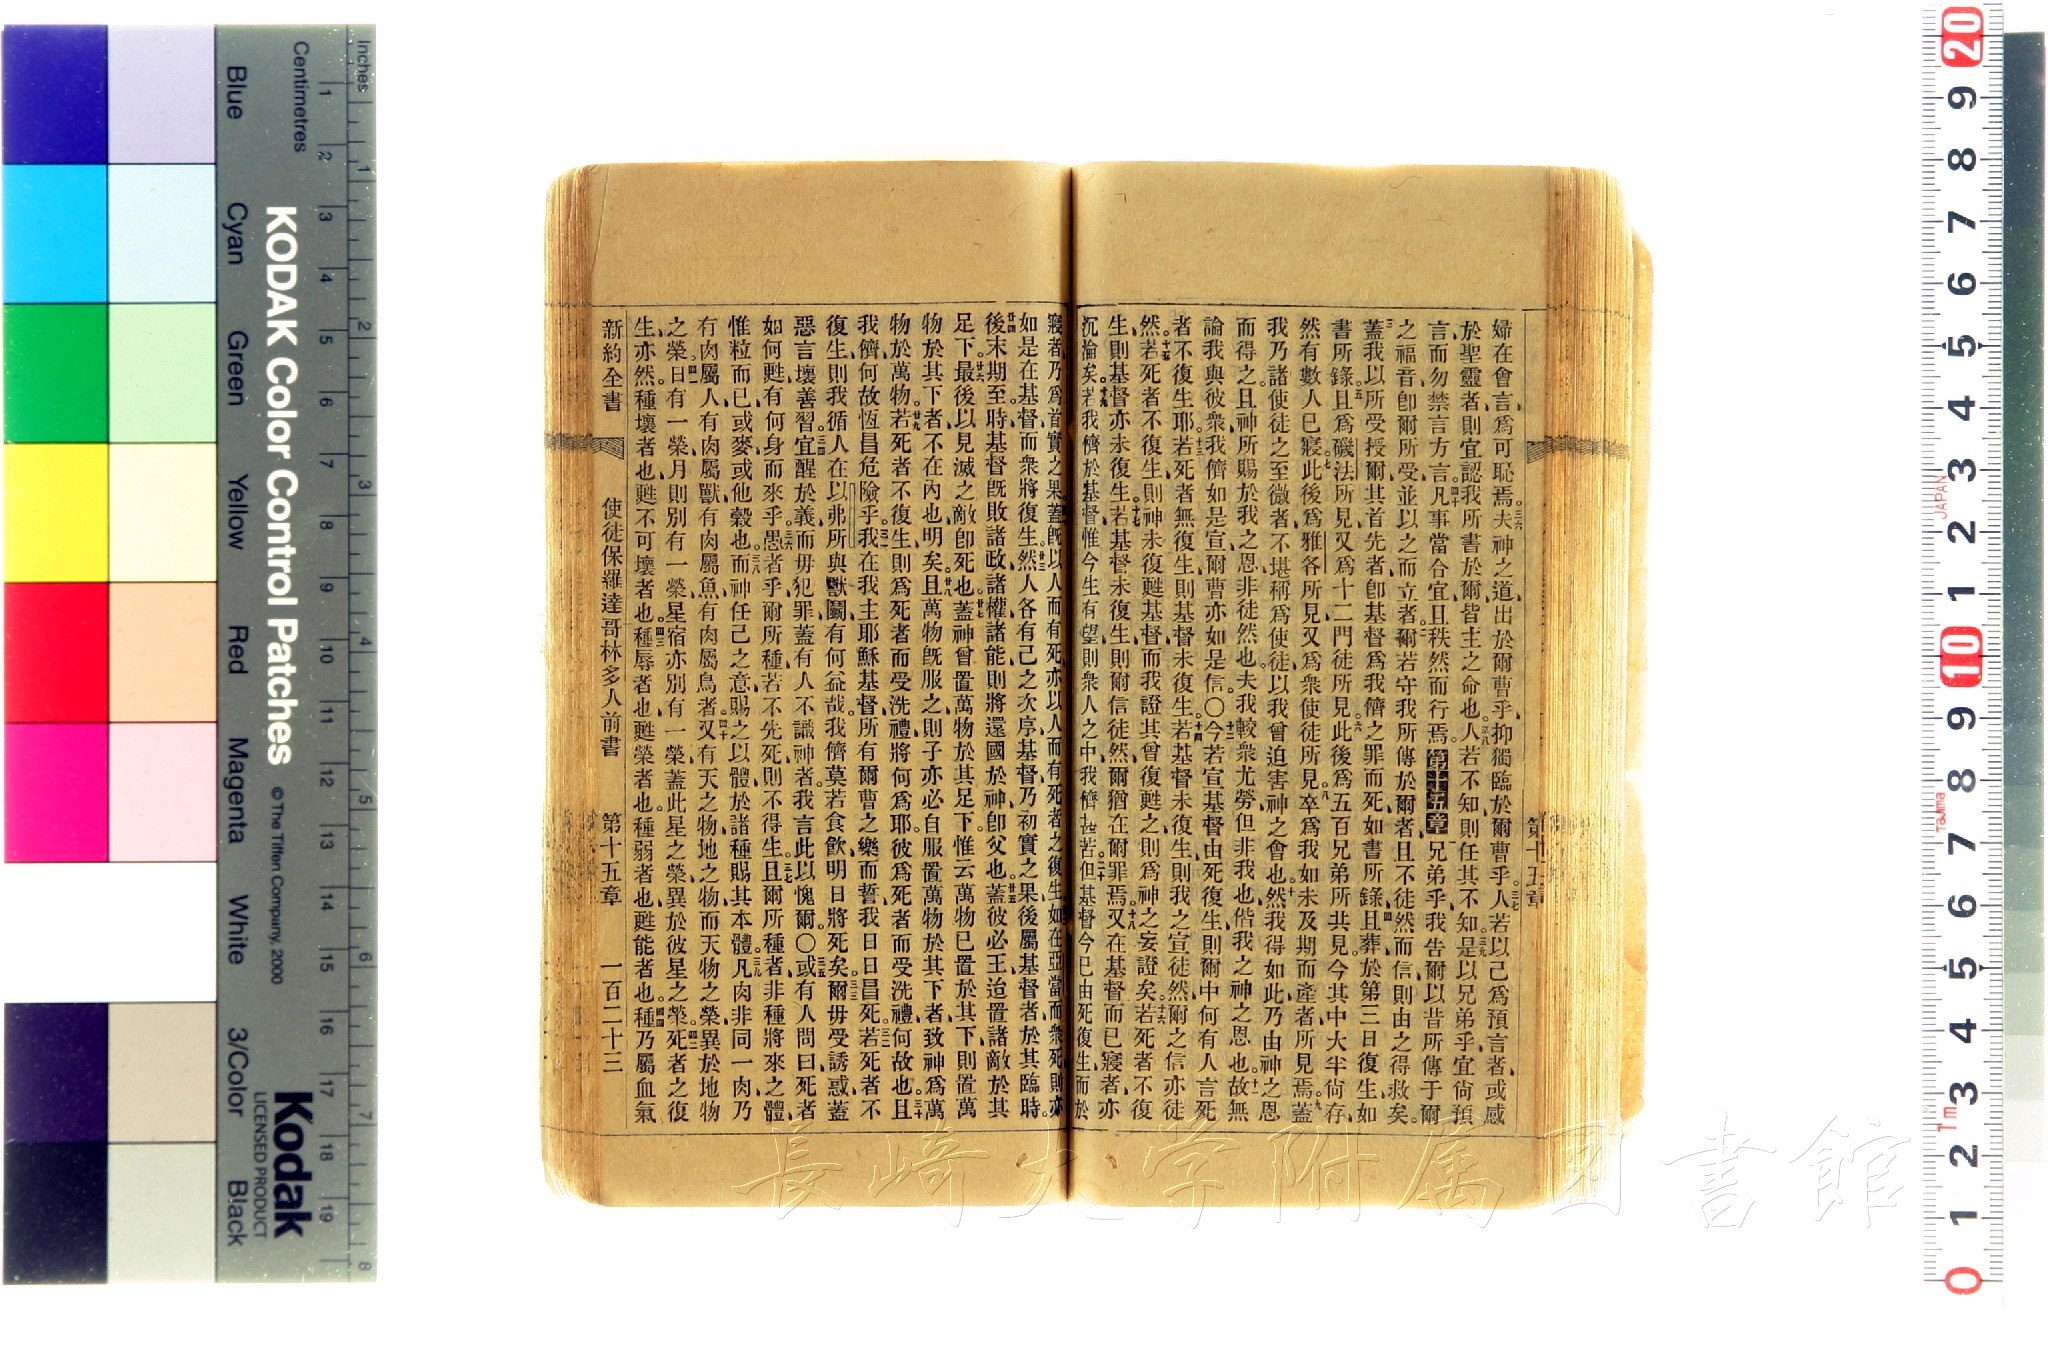 婦在會言爲可恥焉三六夫神之道出於爾曹乎抑獨臨於爾曹乎三七人若以己爲預言者或感
於聖靈者則宜認我所書於爾皆主之命也三八人若不知則任其不知三九是以兄弟乎宜尙預
言而勿禁言方言四十凡事當合宜且秩然而行焉第十五章一兄弟乎我告爾以昔所傳于爾
之福音卽爾所受並以之而立者二爾若守我所傳於爾者且不徒然而信則由之得救矣
三蓋我以所受授爾其首先者卽基督爲我儕之罪而死如書所錄四且葬於第三日復生如
書所錄五且爲磯法所見又爲十二門徒所見六此後爲五百兄弟所共見今其中大半尙存
然有數人已寢七此後爲雅各所見又爲衆使徒所見八卒爲我如未及期而產者所見焉九蓋
我乃諸使徒之至微者不堪稱爲使徒以我曾迫害神之會也十然我得如此乃由神之恩
而得之且神所賜於我之恩非徒然也夫我較衆尤勞但非我也偕我之神之恩也十一故無
論我與彼衆我儕如是宣爾曹亦如是信〇十二今若宣基督由死復生則爾中何有人言死
者不復生耶十三若死者無復生則基督未復生十四若基督未復生則我之宣徒然爾之信亦徒
然十五若死者不復生則神未復甦基督而我證其曾復甦之則爲神之妄證矣十六若死者不復
生則基督亦未復生十七若基督未復生則爾信徒然爾猶在爾罪焉十八又在基督而已寢者亦
沉淪矣十九若我儕於基督惟今生有望則衆人之中我儕甚苦二十但基督今已由死復生而於
寢者乃爲首實之果蓋旣以人而有死亦以人而有死者之復生如在亞當而衆死則亦
如是在基督而衆將復生廿三然人各有己之次序基督乃初實之果後屬基督者於其臨時
廿四後末期至時基督旣敗諸政諸權諸能則將還國於神卽父也廿五蓋彼必王迨置諸敵於其
足下廿六最後以見滅之敵卽死也廿七蓋神曾置萬物於其足下惟云萬物已置於其下則置萬
物於其下者不在內也明矣廿八且萬物旣服之則子亦必自服置萬物於其下者致神爲萬
物於萬物廿九若死者不復生則爲死者而受洗禮將何爲耶彼爲死者而受洗禮何故也三十且
我儕何故恆昌危險乎三一我在我主耶穌基督所有爾曹之樂而誓我日日昌死三二若死者不
復生則我循人在以弗所與獸鬬有何益哉我儕莫若食飮明日將死矣三三爾毋受誘惑蓋
惡言壞善習三四宜醒於義而毋犯罪蓋有人不識神者我言此以愧爾〇三五或有人問曰死者
如何甦有何身而來乎三六愚者乎爾所種若不先死則不得生三七且爾所種者非種將來之體
惟粒而已或麥或他穀也三八而神任己之意賜之以體於諸種賜其本體三九凡肉非同一肉乃
有肉屬人有肉屬獸有肉屬魚有肉屬鳥者四十又有天之物地之物而天物之榮異於地物
之榮四一日有一榮月則別有一榮星宿亦別有一榮蓋此星之榮異於彼星之榮四二死者之復
生亦然種壞者也甦不可壞者也四三種辱者也甦榮者也種弱者也甦能者也四四種乃屬血氣
新約全書　使徒保羅達哥林多人前書　第十五章　一百二十三
KODAK Color Control Patches
© The Tiffen Company, 2000
Kodak
LICENSED PRODUCT
Inches
Centimetres
Blue
Cyan
Green
Yellow
Red
Magenta
White
3/Color
Black
JAPAN
Tajima
長崎大学附属図書館